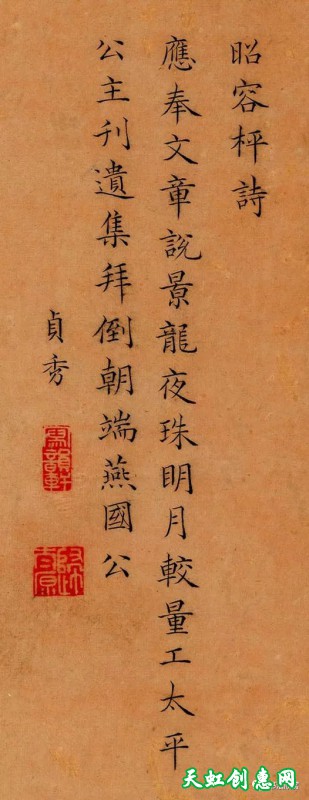 昭容枰詩
應奉文章說景龍夜珠眀月較量工太平
公主刊遺集拜倒朝端燕國公
貞秀
寫韻軒
天虹创惠网